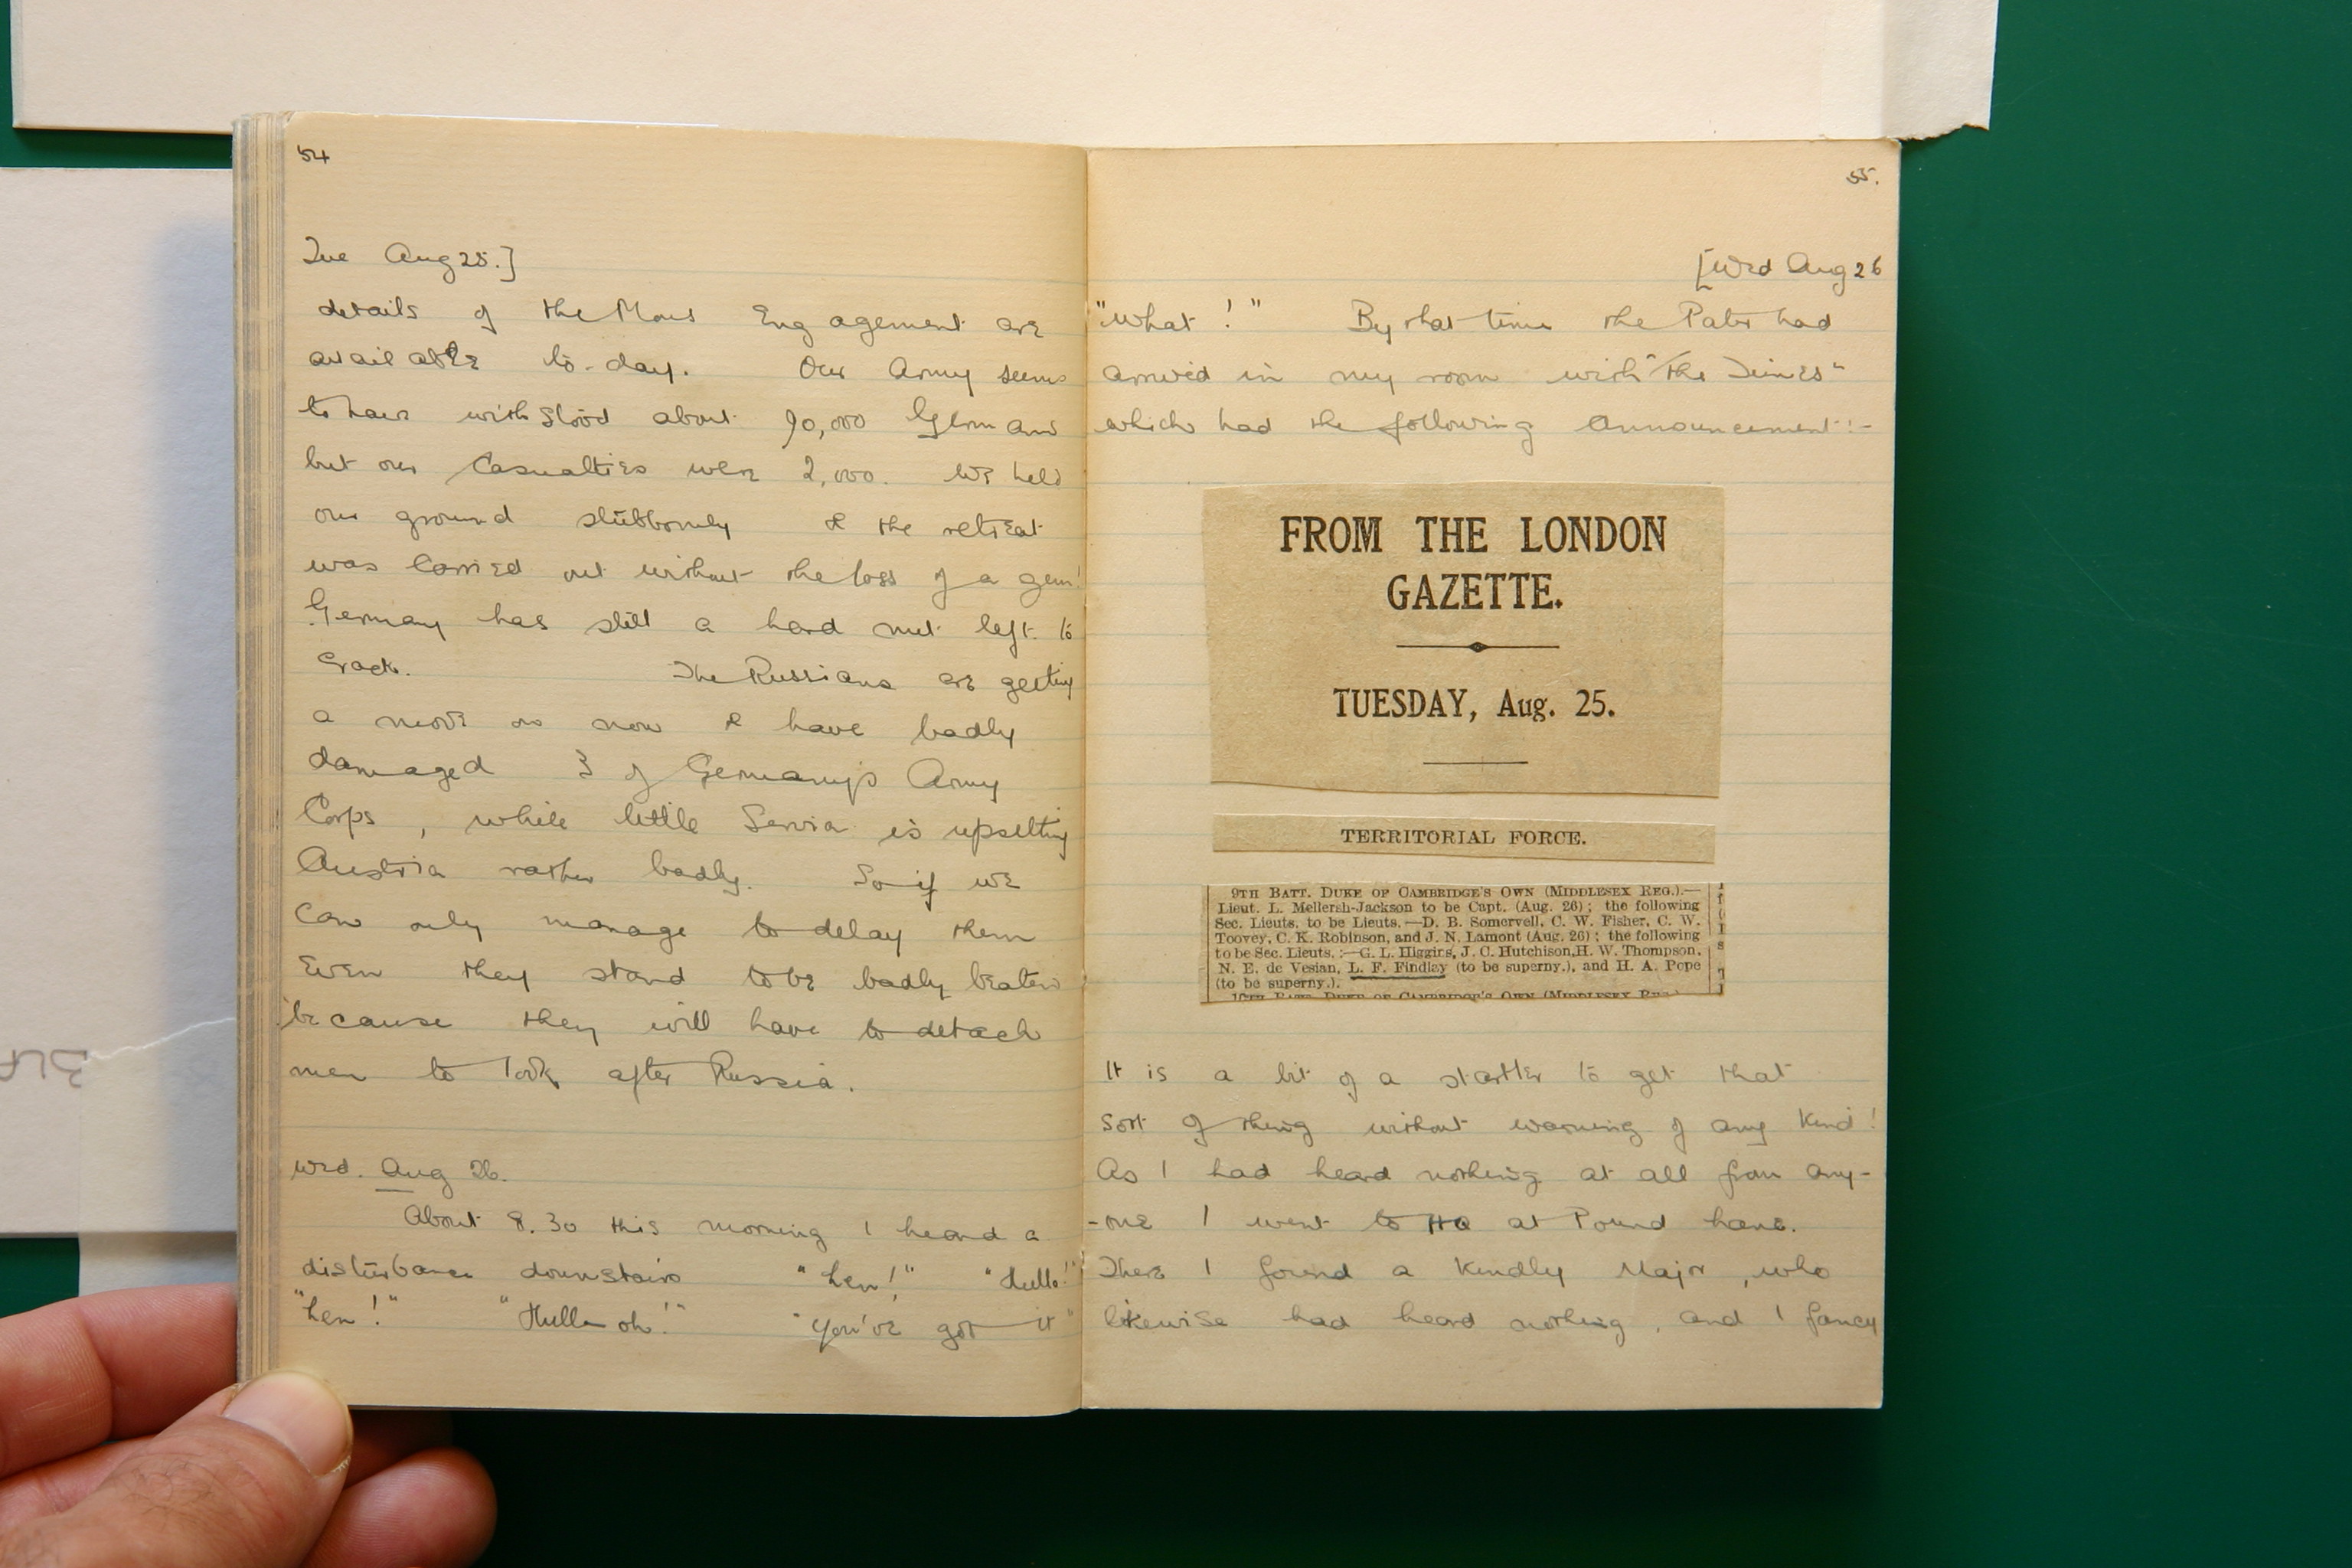 54
Tue Aug 25.]
details of the Mons Engagement are
available to-day. Our Army seems
to have withstood about 90,000 Germans
but our Casualties were 2,000. We held
our ground stubbornly & the retreat
was carried out without the loss of a gun!
Germany has still a hard nut left to
crack. The Russians are getting
a move on now & have badly
damaged 3 of Germany's Army
Corps, while little Servia is upsetting
Austria rather badly. So if we
can only manage to delay them
Even they stand to be badly beaten
because they will have to detach
men to look after Russia.
Wed. Aug 26.
About 8.30 this morning I heard a
disturbance downstairs "Len!" "Hullo!"
"Len!" "Hullo oh!" "You've got it"
55.
[Wed Aug 26
"What!" By that time the Pater had
arrived in my room with "The Times"
which had the following Announcement:-
FROM THE LONDON
GAZETTE.
TUESDAY, Aug. 25.
TERRITORIAL FORCE.
9TH BATT. DUKE OF CAMBRIDGE'S OWN (MIDDLESEX REG.).—
Lieut. L. Mellersh-Jackson to be Capt. (Aug. 26); the following
Sec. Lieuts. to be Lieuts.—D. B. Somervell, C. W. Fisher, C. W.
Toovey, C. K. Robinson, and J. N. Lamont (Aug. 26); the following
to be Sec. Lieuts.:—G. L. Higgins, J. C. Hutchison, H. W. Thompson,
N. E. de Vesian, L. F. Findlay (to be superny.), and H. A. Pope
(to be superny.).
10TH BATT. DUKE OF CAMBRIDGE'S OWN (MIDDLESEX REG.)
It is a bit of a startler to get that
sort of thing without warning of any kind!
As I had heard nothing at all from any-
-one I went to HQ at Pound Lane.
There I found a kindly Major, who
likewise had heard nothing, and I fancy